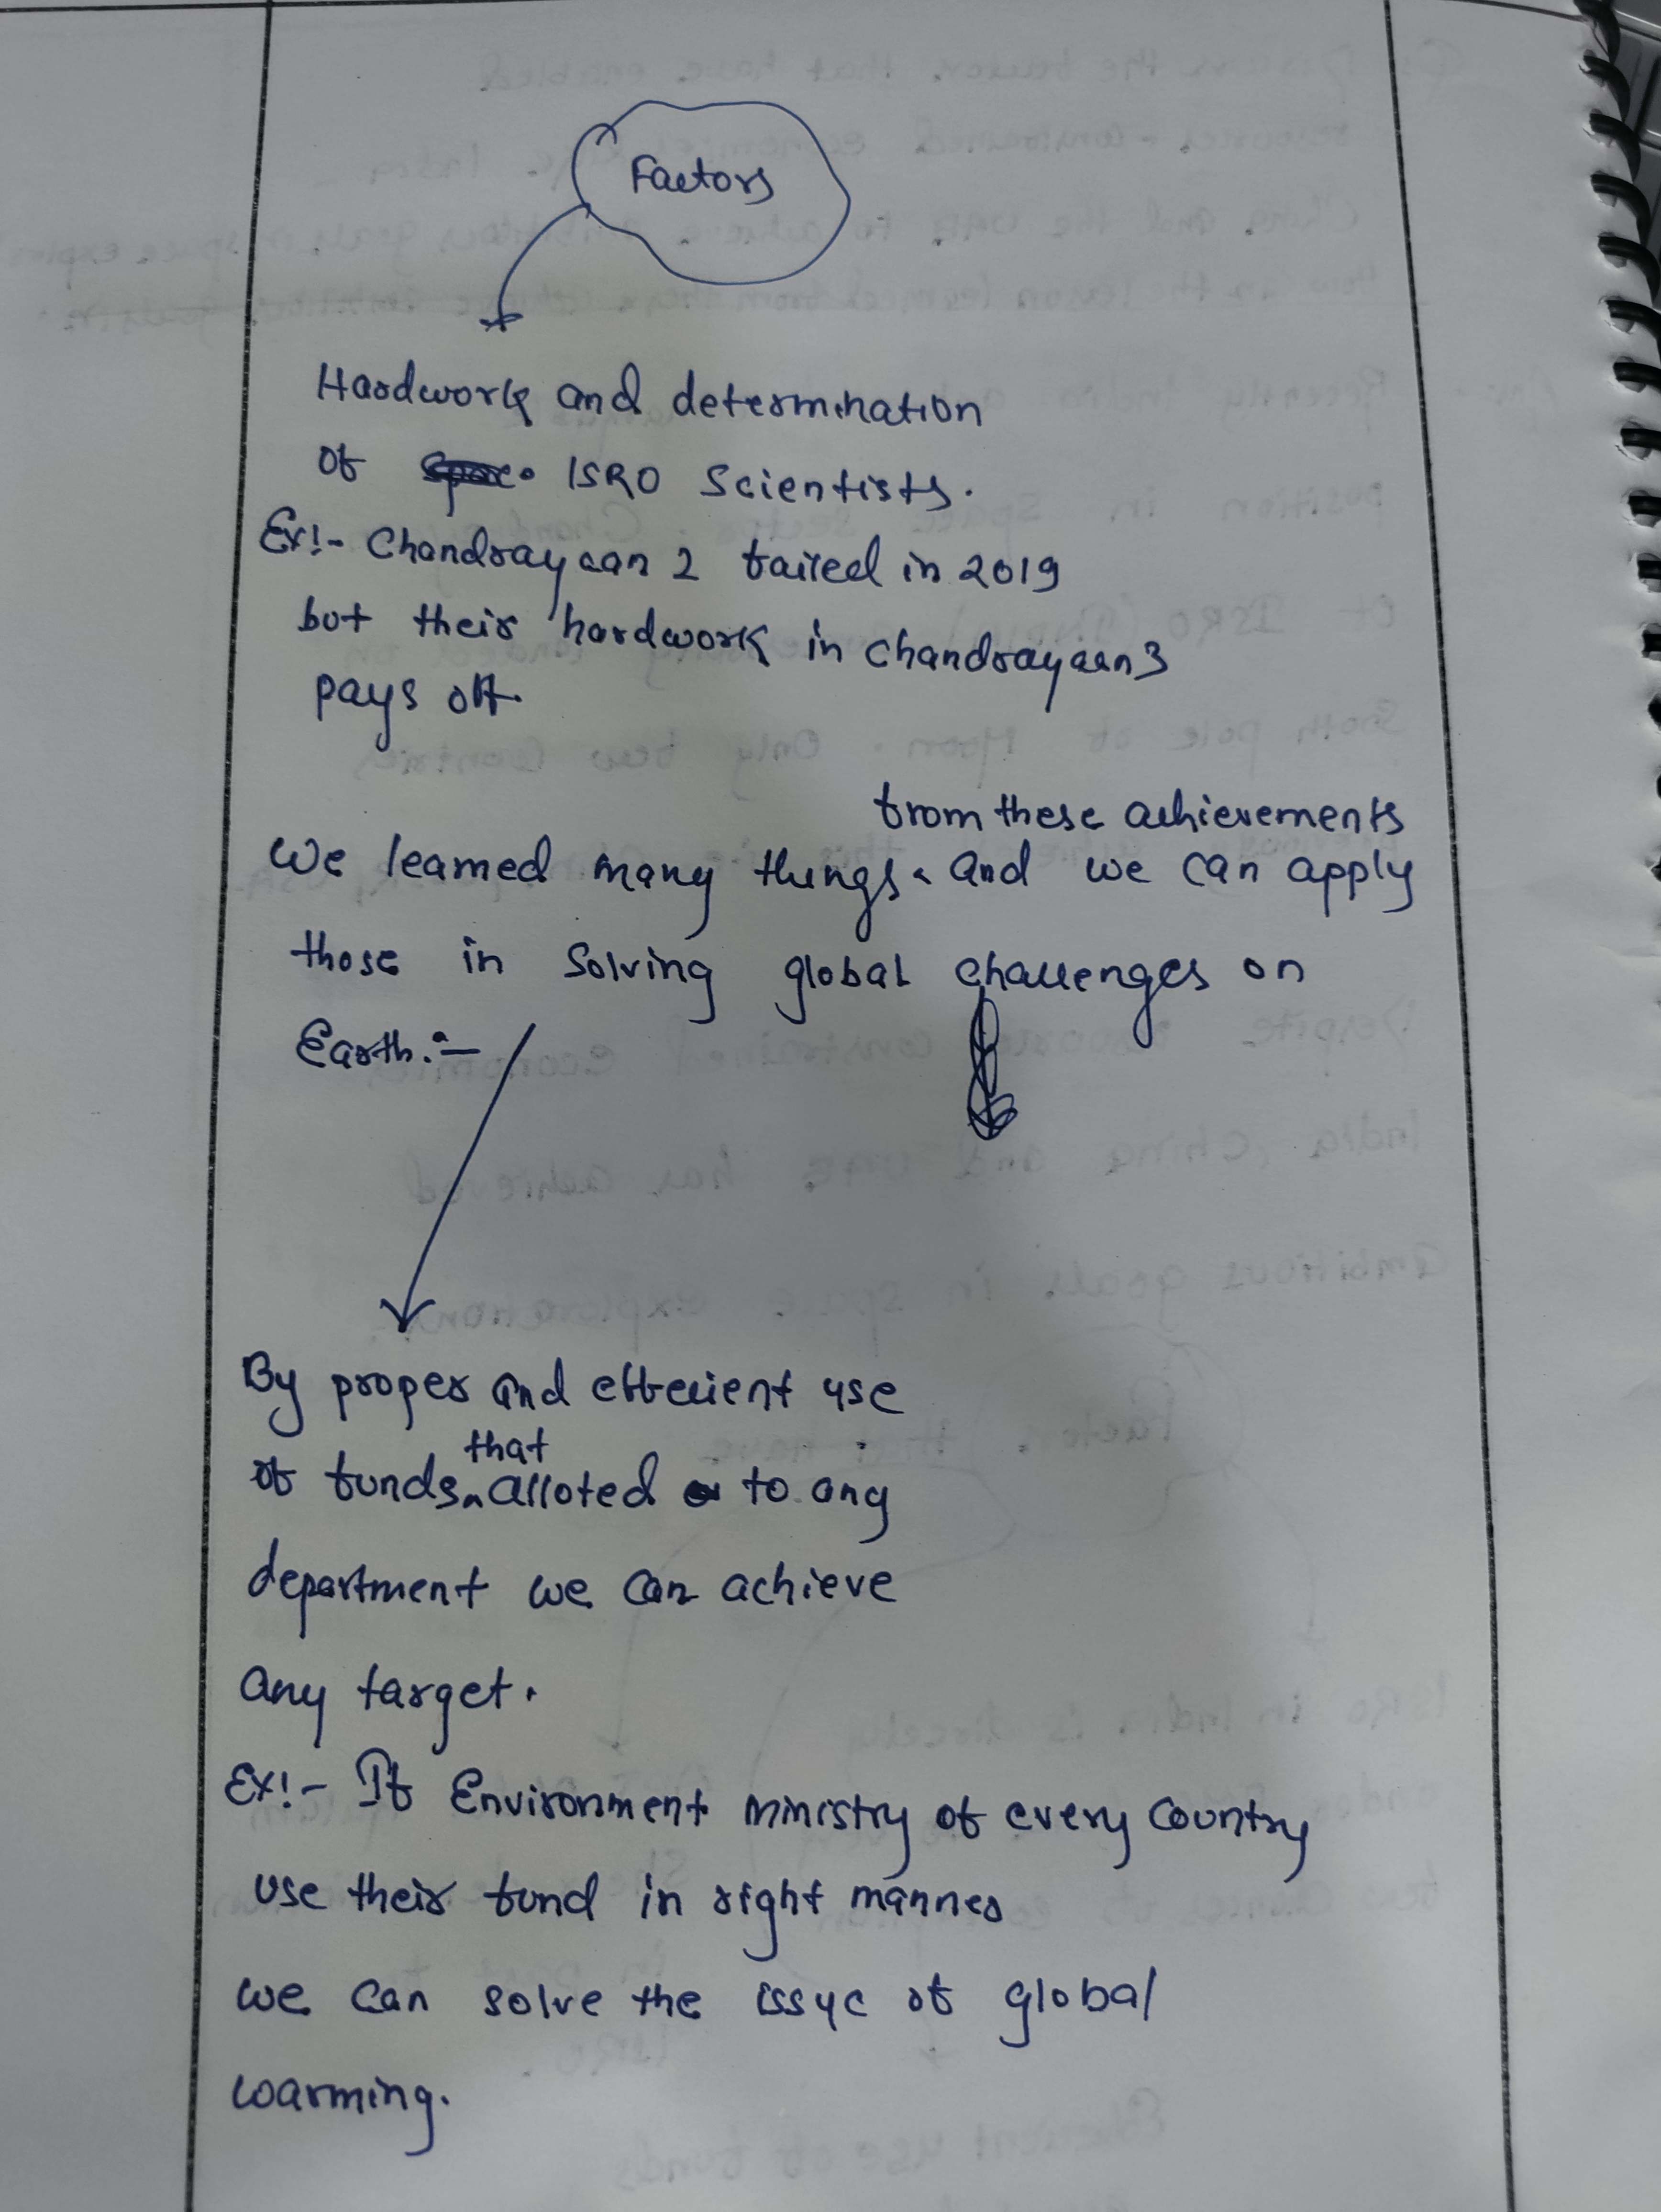 Factors
Hardwork and determination
of ISRO Scientists.
Ex:- Chandrayaan 2 failed in 2019
but their hardwork in Chandrayaan3
pays off.
from these achievements
We learned many things and we can apply
those in Solving global challenges on
Earth:-
By proper and effecient use
that
of funds alloted to any
department we can achieve
any target.
Ex:- If Environment ministry of every Country
use their fund in right manner
we can solve the issue of global
warming.